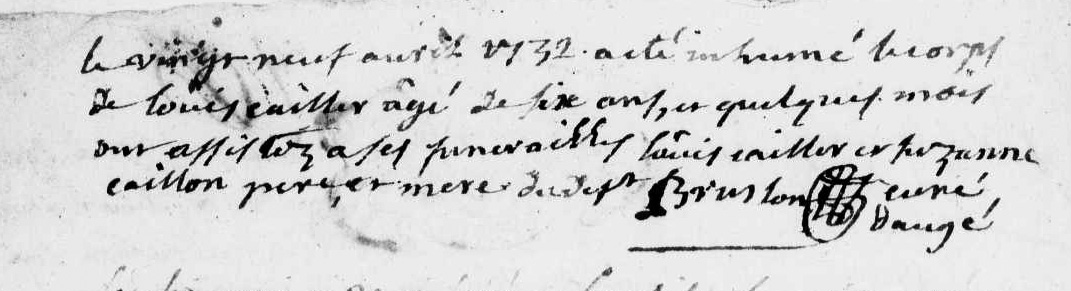 le vingt neuf avril 1732 a eté inhumé le corps
de loüis cailler âgé de six ans, et quelques mois
ont assistez a ses funerailles loüis cailler et suzanne
caillon pere, et mere du deft Bruslon curé
daugé